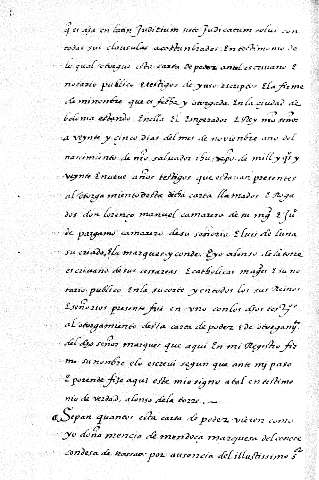 q̃ es dja en latin Juditium sisti Judicatum solui con
todas sus clausulas acostumbradas. En testimonio de
lo qual otorgue esta carta de poder ante el escriuano E
notario publico E testigos de yuso escriptos E la firme
de mi nombre que es fecha y otorgada. En la ciudad de
bolonia estando En ella El Emperador E Rey nr̃o señor
a veynte y cinco dias del mes de noviembre año del
nascimiento de nr̃o saluador ihu xp̃o de mill y qys y
veynte E nueue años testigos que estauan presentes
al otorgamiento desta dicha carta llamados E Roga
dos don lorenço manuel camarero de su mgt E Ju°
de pergamo camarero de so señoria E luis de luna
su criado, del marques y conde. E yo alonso de la torre
escriuano de sus cesareas E catholicas magtes E su no
tario publico En la su corte y en todos los sus Reinos
E señorios presente fui en vno con los dhos tesos
al otorgamiento desta carta de poder E de otorgamyo
del dho señor marques que aqui En mi Registro fir
mo su nombre e lo escreui segun que ante mi paso
E por ende fize aqui este mio signo a tal en testimo
nio de verdad, alonso de la torre.
Sepan quantos esta carta de poder vieren como
yo doña mencia de mendoça marquesa del cenete
condesa de nassau por ausencia del illustrissimo sor